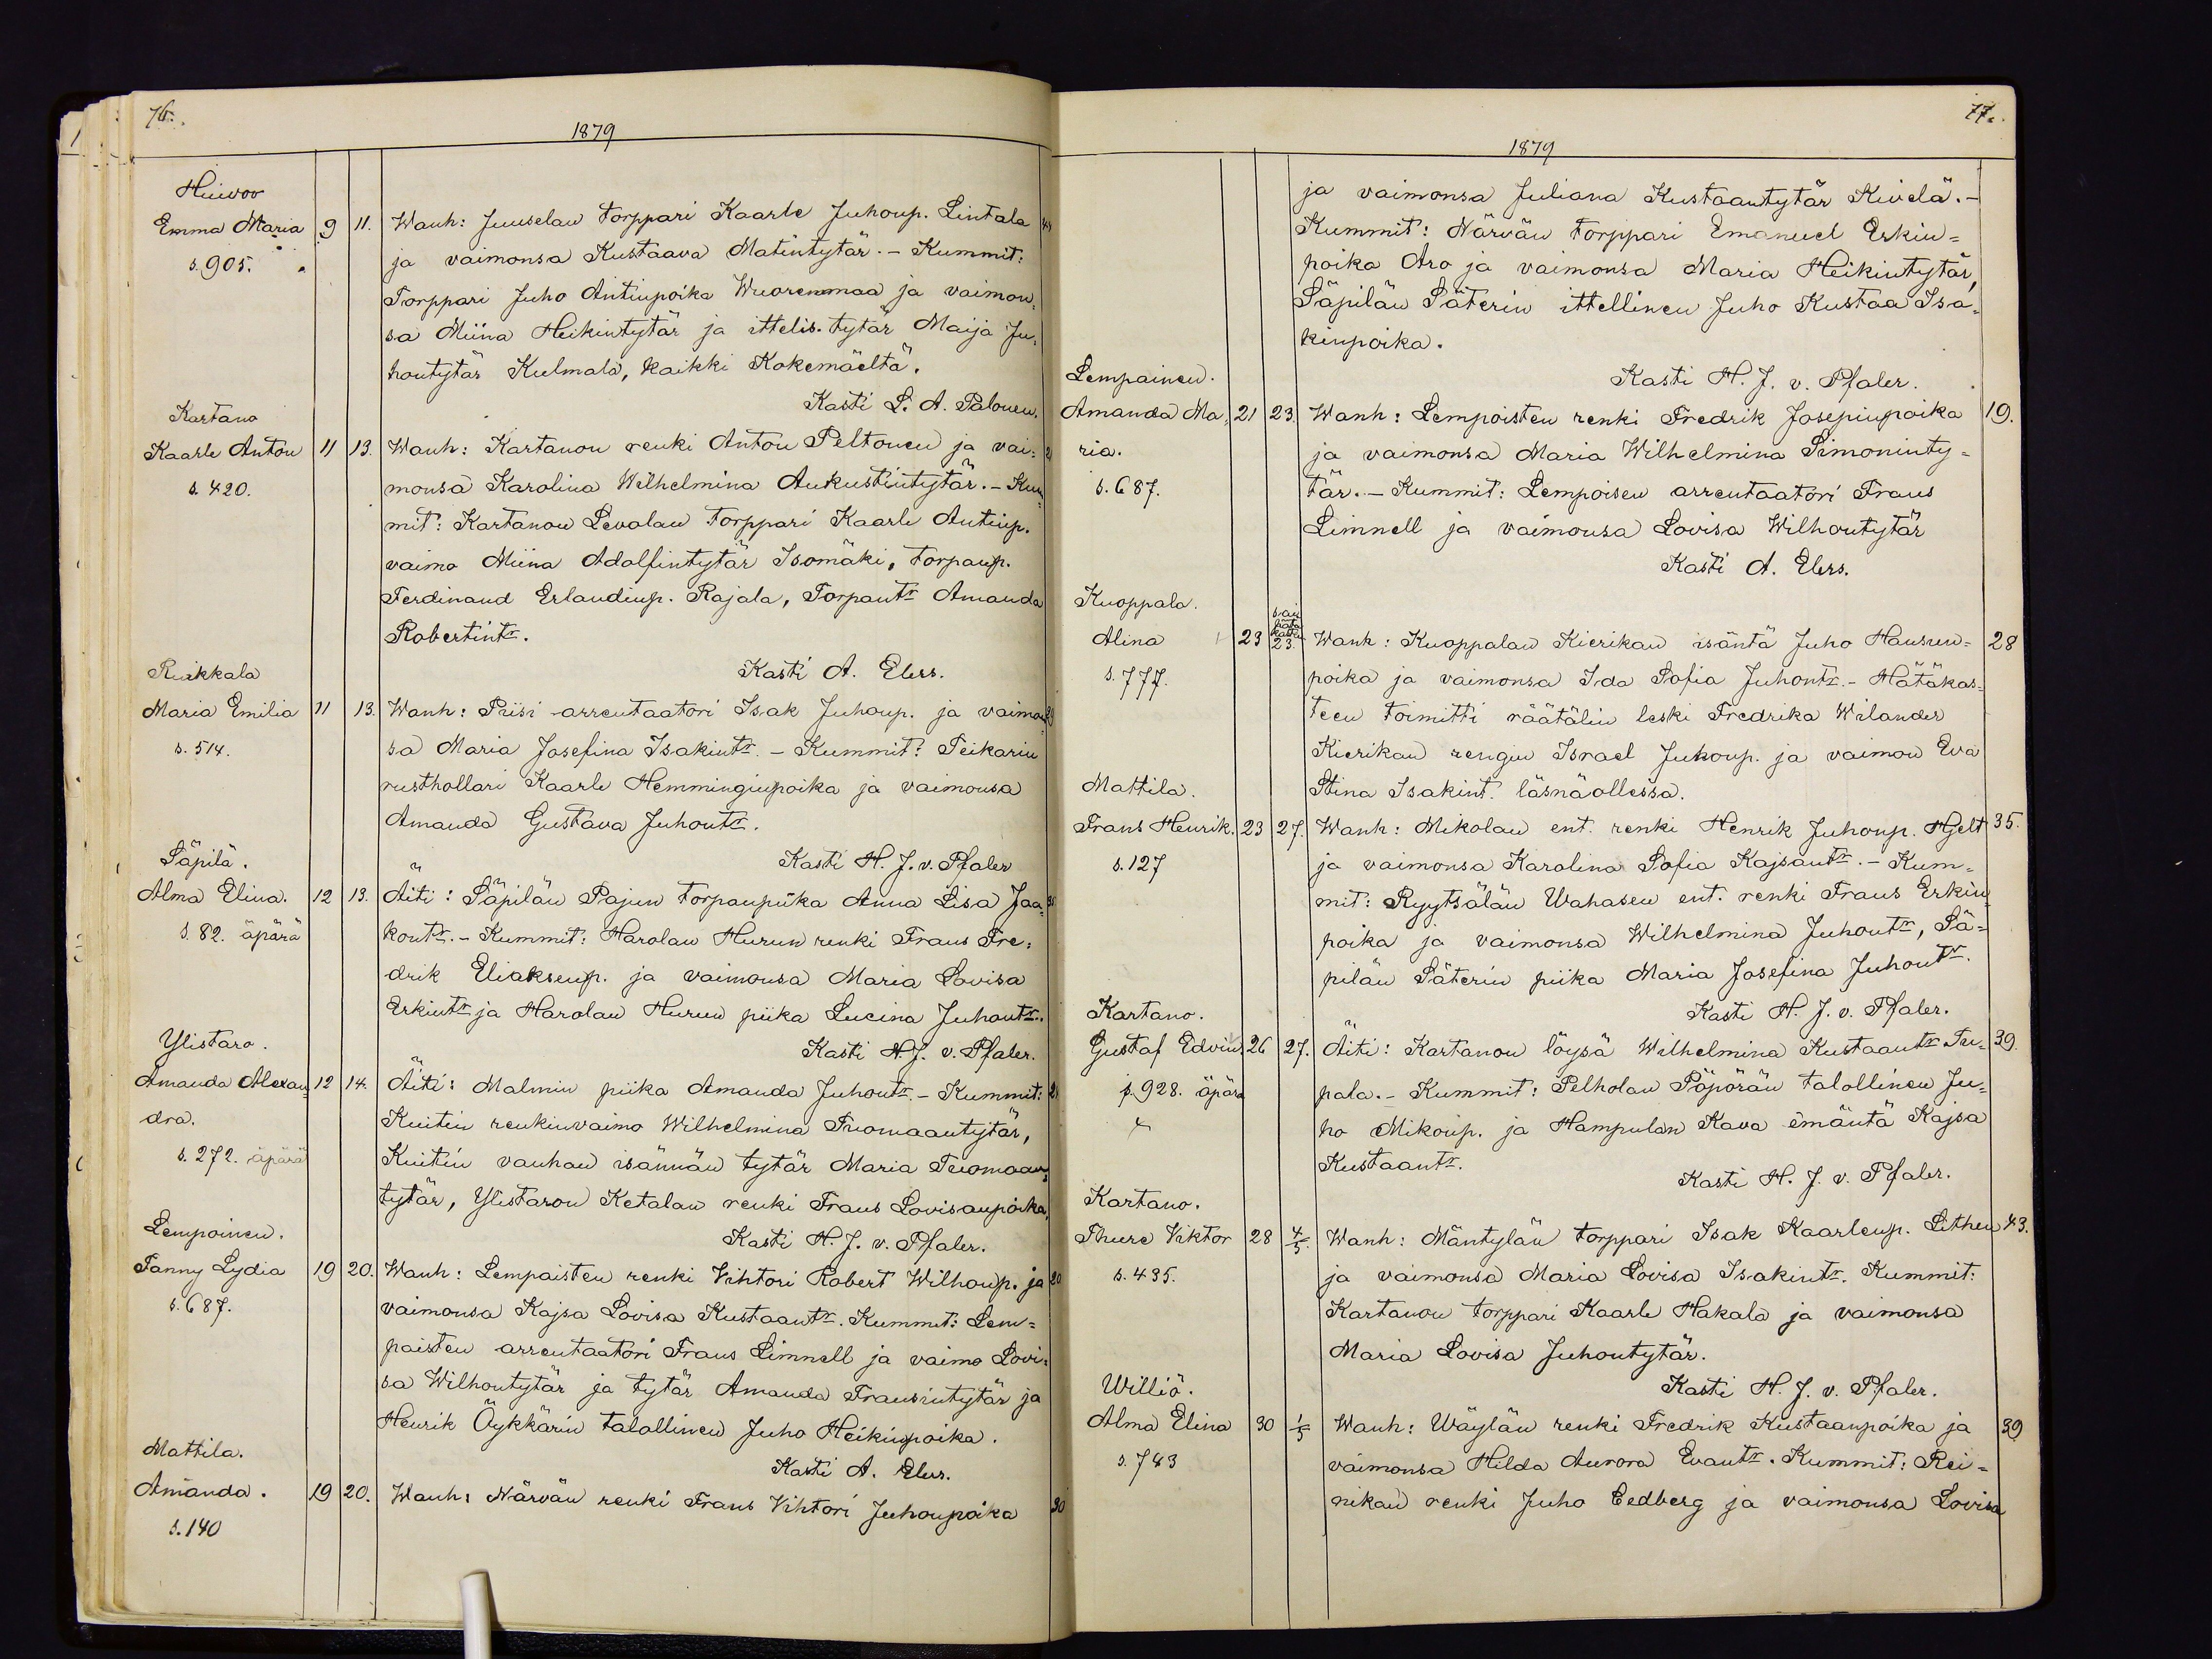 76.
1879
Huivoo
Emma Maria 9 11. Wanh: Juuselan torppari Kaarle Juhonp. Lintala
s. 905. ja vaimonsa Kustaava Matintytär. - Kummit:
Torppari Juho Antinpoika Wuorenmaa ja vaimon
sa Miina Heikintytär ja ittelis. tytär Maija Ju,
hontytär Kulmala, kaikki Kokemäeltä.
Kasti L. A. Palonen.
Kartano
Kaarle Anton 11 13. Wanh: Kartanon renki Anton Peltonen ja vai=
s. 420. monsa Karolina Wilhelmina Aukustintytär. - Kum
mit: Kartanon Levolan torppari Kaarle Antinp.
vaimo Miina Adolfintytär Isomäki, torpanp.
Ferdinand Erlandinp. Rajala, Torpantr Amanda
Robertintr.
Kasti A. Elers.
Ruikkala
Maria Emilia 11 13. Wanh: Piisi arrentaatori Isak Juhonp. ja vaimon
s. 514. sa Maria Josefina Isakintr. - Kummit: Teikarin
rusthollari Kaarle Hemminginpoika ja vaimonsa
Amanda Gustava Juhontr.
Kasti H. J. v. Pfaler
Säpilä.
Alma Elina. 12 13. Äiti: Säpilän Pajun torpanpiika Anna Lisa Jaa=
s. 82. äpärä kontr. - Kummit: Harolan Hurun renki Frans Fre=
drik Eliaksenp. ja vaimonsa Maria Lovisa
Erkintr ja Harolan Hurun piika Lucina Juhontr.
Kasti H. J. v. Pfaler.
Ylistaro.
Amanda Alexan= 12 14. Äiti: Malmin piika Amanda Juhontr. - Kummit:
dra. Kuitin renkinvaimo Wilhelmina Tuomaantytär,
s. 272. äpärä Kuitin vanhan isännän tytär Maria Tuomaan,
tytär, Ylistaron Ketalan renki Frans Lovisanpoika,
Kasti H. J. v. Pfaler.
Lempoinen.
Fanny Lydia 19 20. Wanh: Lempaisten renki Vihtori Robert Wilhonp. ja 20
s. 687. vaimonsa Kajsa Lovisa Kustaantr. Kummit: Lem=
paisten arrentaatori Frans Limnell ja vaimo Lovi=
sa Wilhontytär ja tytär Amanda Fransintytär ja
Henrik Öykkärin talollinen Juho Heikinpoika.
Kasti A. Elers.
Mattila.
Amanda. 19 20. Wanh: Närvän renki Frans Vihtori Juhonpoika 30
s. 140
77.
1879
ja vaimonsa Juliana Kustaantytär Kivelä. -
Kummit: Närvän torppari Emanuel Erkin=
poika Aro ja vaimonsa Maria Heikintytär,
Säpilän Säterin ittellinen Juho Kustaa Isa=
kinpoika.
Kasti H. J. v. Pfaler.
Lempainen.
Amanda Ma= 21 23. Wanh: Lempoisten renki Fredrik Josepinpoika 19.
ria. ja vaimonsa Maria Wilhelmina Simoninty=
s. 687. tär. - Kummit: Lempoisen arrentaatori Frans
Limnell ja vaimonsa Lovisa Wilhontytär
Kasti A. Elers.
Kuoppala.
sai
hätä
kaste
Alina 23 23. Wanh: Kuoppalan Kierikan isäntä Juho Hansun= 28
s. 777. poika ja vaimonsa Ida Sofia Juhontr. - Hätäkas=
teen toimitti räätälin leski Fredrika Wilander
Kierikan rengin Israel Juhonp. ja vaimon Eva
Stina Isakint. läsnäollessa.
Mattila.
Frans Henrik. 23 27. Wanh: Mikolan ent. renki Henrik Juhonp. Hjelt 35.
s. 127 ja vaimonsa Karolina Sofia Kajsantr. - Kum=
mit: Ryytsälän Wahasen ent. renki Frans Erkin
poika ja vaimonsa Wilhelmina Juhontr, Sä=
pilän Säterin piika Maria Josefina Juhontr.
Kasti H. J. v. Pfaler.
Kartano.
Gustaf Edvin 26 27. Äiti: Kartanon löysä Wilhelmina Kustaantr Tu= 39.
s. 928. äpärä pala. - Kummit: Pelholan Päpörän talollinen Ju=
ho Mikonp. ja Hampulan Kava emäntä Kajsa
Kustaantr.
Kasti H. J. v. Pfaler.
Kartano.
Thure Viktor 28 4/5. Wanh: Mäntylän torppari Isak Kaarlenp. Lithen 43.
s. 435. ja vaimonsa Maria Lovisa Isakintr. Kummit:
Kartanon torppari Kaarle Hakala ja vaimonsa
Maria Lovisa Juhontytär.
Kasti H. J. v. Pfaler.
Williö.
Alma Elina 30 1/5 Wanh: Wäylän renki Fredrik Kustaanpoika ja 39
s. 743 vaimonsa Hilda Aurora Evantr. Kummit: Rei=
nikan renki Juho Cedberg ja vaimonsa Lovisa